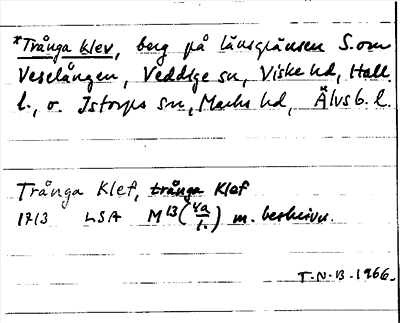 *Trånga klev, berg på länsgränsen S. om
Veselången, Veddige sn, Viske hd, Hall.
l., o. Istorps sn, Marks hd, Älvsb. l.
Trånga Klef, trånga Klef
1713 LSA M 13 (4a/1.) m. beskrivn.
T.N.B. 1966.